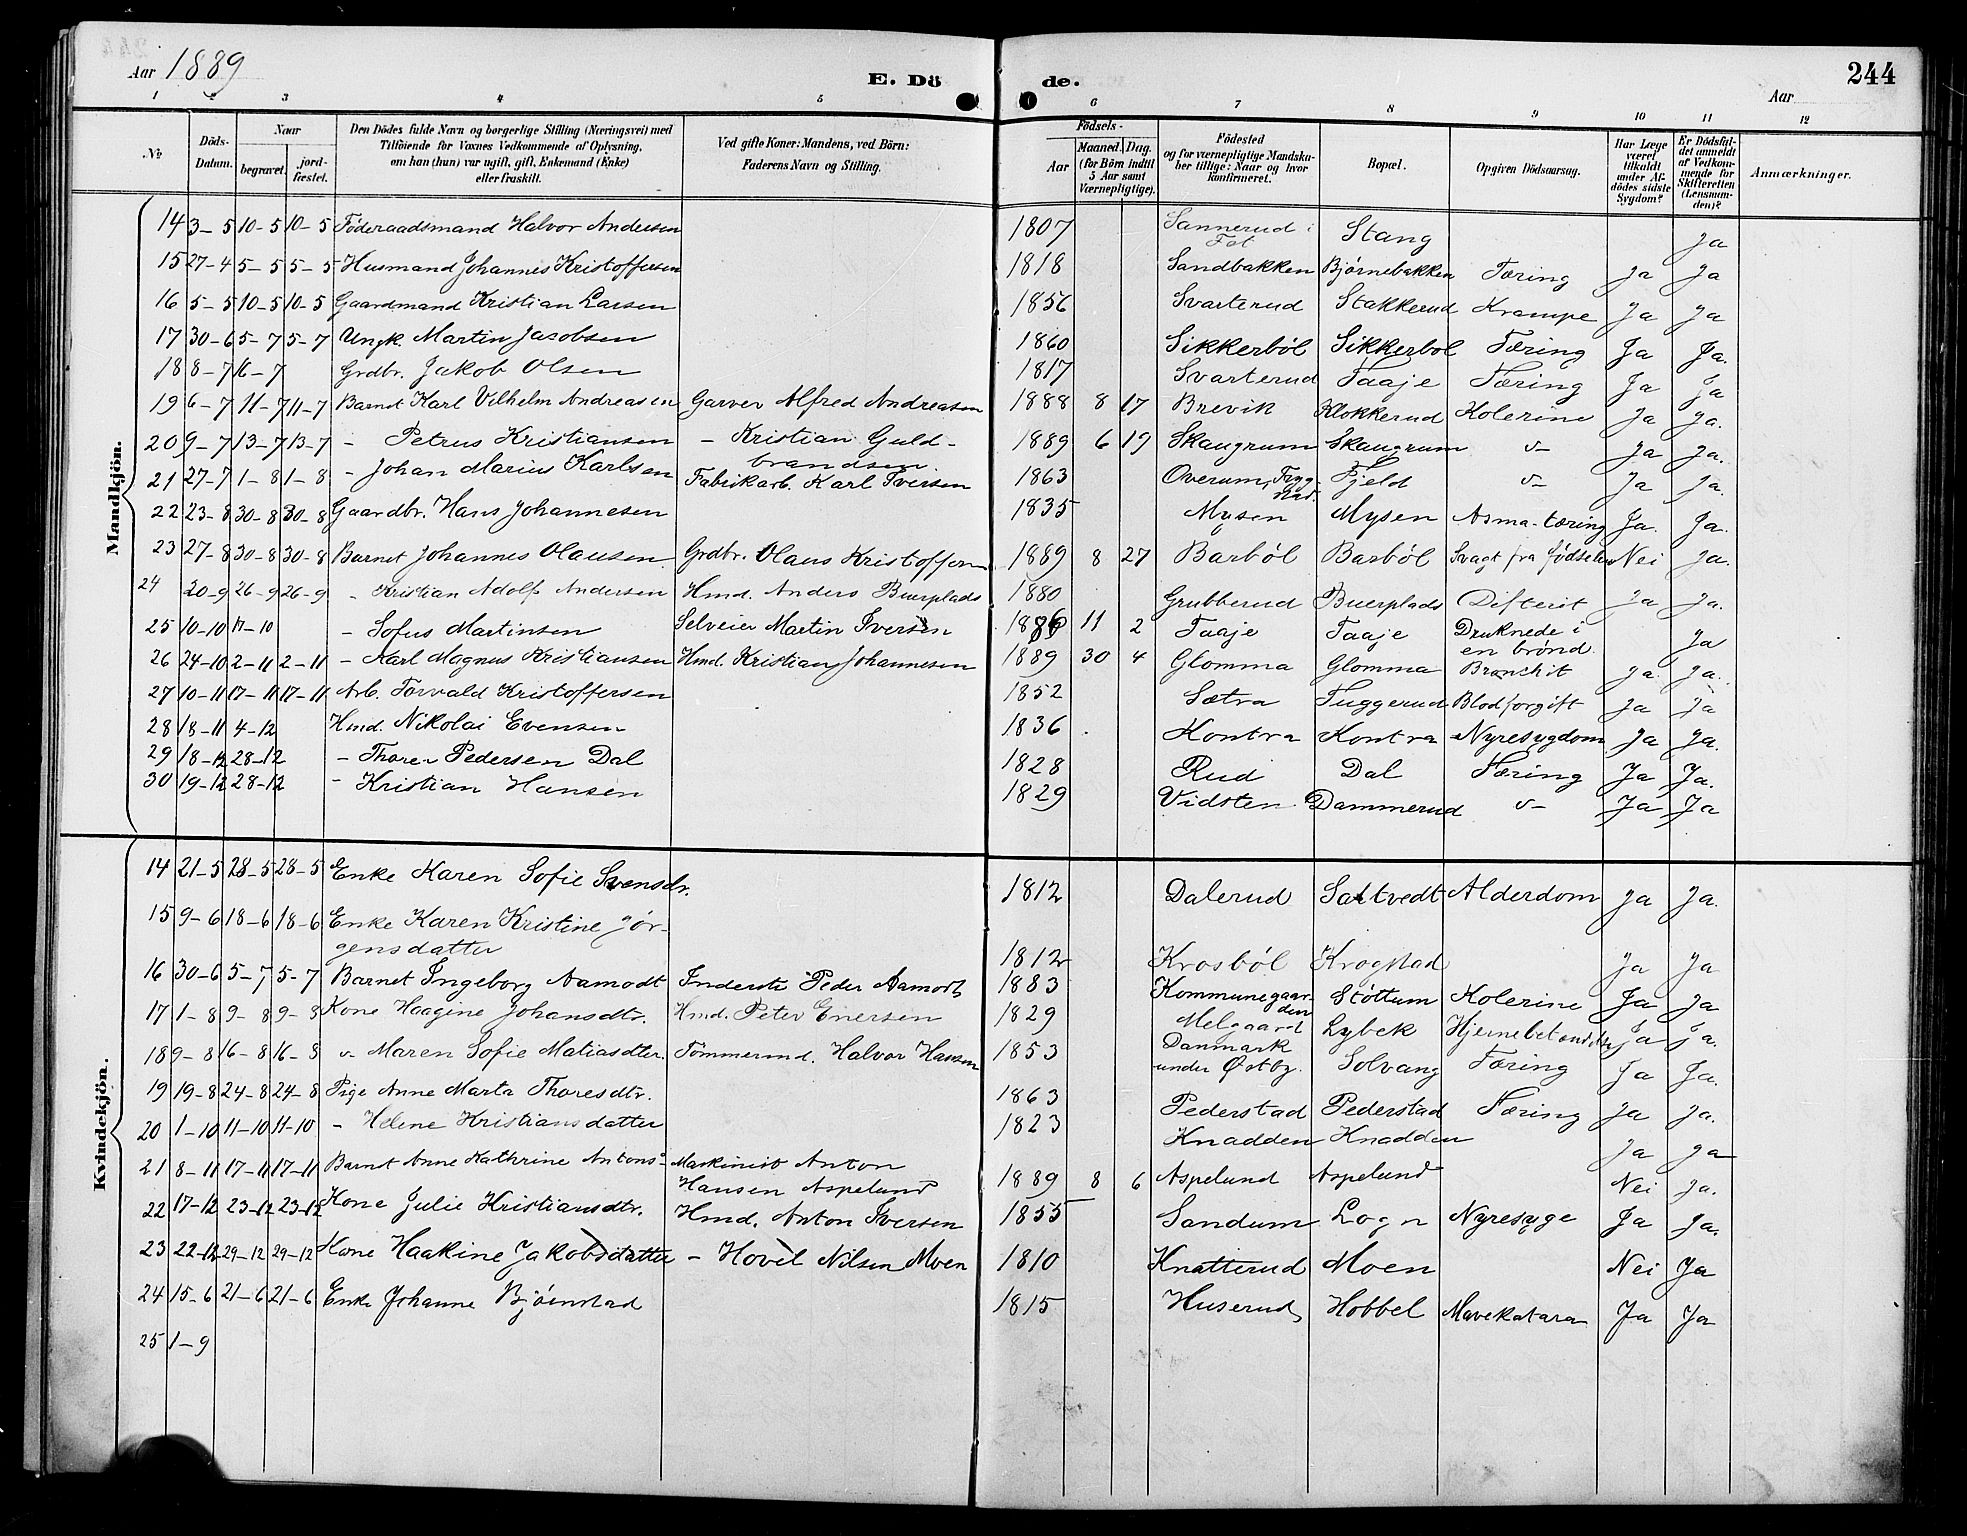 Aar 1889
E. Dö
de.
244
Aar
1 2 3 4 5 6 7 8 9 10 11 12
No
Döds-Datum.
Naar
begravet.
jord-fæstet.
Den Dödes fulde Navn og borgerlige Stilling (Næringsvei) med
Tilföiende for Voxnes Vedkommende af Oplysning,
om han (hun) var ugift, gift, Enkemand (Enke)
eller fraskilt.
Ved gifte Koner: Mandens, ved Börn:
Faderens Navn og Stilling.
Födsels-
Aar
Maaned. Dag.
(for Börn indtil
5 Aar samt
Værnepligtige).
Födested
og for værnepligtige Mandska-
ber tillige: Naar og hvor
konfirmeret.
Bopæl.
Opgiven Dödsaarsag.
Har Læge
været
tilkaldt
under Af-
dödes sidste
Sygdom?
Er Dödsfal-
det anmeldt
af Vedkom-
mende for
Skifteretten
(Lensman-
den)?
Anmærkninger.
Mandkjön.
14 3-5 10-5 10-5 Föderaadsmand Halvor Andersen 1807 Sannerud i Fet Stang Ja
15 27-4 5-5 5-5 Husmand Johannes Kristoffersen 1818 Sandbakken Bjørnebakken Tæring Ja Ja
16 5-5 10-5 10-5 Gaardmand Kristian Larsen 1856 Svarterud Stakkerud Krampe Ja Ja
17 30-6 5-7 5-7 Ungk. Martin Jacobsen 1860 Sikkerböl Sikkerböl Tæring Ja Ja.
18 8-7 16-7 Grdbr. Jakob Olsen 1817 Svarterud Taaje Tæring Ja Ja
19 6-7 11-7 11-7 Barnet Karl Vilhelm Andreasen Garver Alfred Andreasen 1888 8 17 Brevik Klokkerud Kolerine Ja Ja.
20 9-7 13-7 13-7 - Petrus Kristiansen - Kristian Guld-
brandsen. 1889 6 19 Skaugrum Skaugrum v- Ja Ja.
21 27-7 1-8 1-8 - Johan Marius Karlsen Fabrikarb. Karl Iversen 1863 Overum, Fjeld v- Ja Ja.
22 23-8 30-8 30-8 Gaardbr. Hans Johannesen 1835 Mysen Mysen Asma-tæring Ja. Ja.
23 27-8 30-8 30-8 Barnet Johannes Olausen. Grdbr. Olaus Kristoffersn 1889 8 27 Barböl Barböl Svagt fra fødselen Nei Ja.
24 20-9 26-9 26-9 - Kristian Adolf Andersen Hmd. Anders Buerplads 1880 Grubberud Buerplads Difterit Ja Ja.
25 10-10 17-10 - Sofus Martinsen Selveier Martin Iversen 1886 11 2 Taaje Taaje Druknede i
en brønd. Ja
26 24-10 2-11 2-11 - Karl Magnus Kristiansen Hmd. Kristian Johannesen 1889 30 4 Glomma Glomma Bronchit Ja. Ja.
27 10-11 17-11 17-11 Arb. Torvald Kristoffersen 1852 Sætra Tuggerud Blodforgift Ja Ja
28 18-11 4-12 Hmd. Nikolai Evensen 1836 Kontra Kontra Nyresygdom Ja Ja.
29 18-12 28-12 - Thorer Pedersen Dal 1828 Rud Dal Tæring Ja Ja.
30 19-12 28-12 - Kristian Hansen 1829 Vidsten Dammerud v- Ja Ja
Kvindekjön.
14 21-5 28-5 28-5 Enke Karen Sofie Svensdr. 1812 Dalerud Saltvedt Alderdom Ja Ja.
15 9-6 18-6 18-6 Enke Karen Kristine Jör-
gensdatter 1812 Krosböl Krogstad Ja Ja
16 30-6 5-7 5-7 Barnet Ingeborg Aamodt Inderste Peder Aamodt 1883 Kommunegaar-
den Støttum Kolerine Ja Ja
17 1-8 9-8 9-8 Kone Haagine Johansdtr. Hmd. Peter Enersen 1829 Melgaard
Danmark Lybek Hjernebetændelse Ja Ja.
18 9-8 16-8 16-8 v- Maren Sofie Matiasdter. Tömmermd. Halvor Hansen 1853 under Østby. Solvang Tæring Ja Ja.
19 19-8 24-8 24-8 Pige Anne Marta Thoresdtr. 1863 Pederstad Pederstad Tæring Ja Ja.
20 1-10 11-10 11-10 - Helene Kristiansdatter 1823 Knadden Knadden Ja Ja
21 8-11 17-11 17-11 Barnet Anne Kathrine Antons- Maskinist Anton
Hansen Aspelund 1889 8 6 Aspelund Aspelund Nei Ja.
22 17-12 23-12 23-12 Kone Julie Kristiansdtr. Hmd. Anton Iversen 1855 Sandum Logn Nyresyge Ja Ja.
23 22-12 29-12 29-12 Kone Haakine Jakobsdatter - Hovel Nilsen Moen 1810 Knatterud Moen Nei Ja
24 15-6 21-6 21-6 Enke Johanne Bjørnstad 1815 Huserud Hobbel Mavekatarr Ja Ja
25 1-9